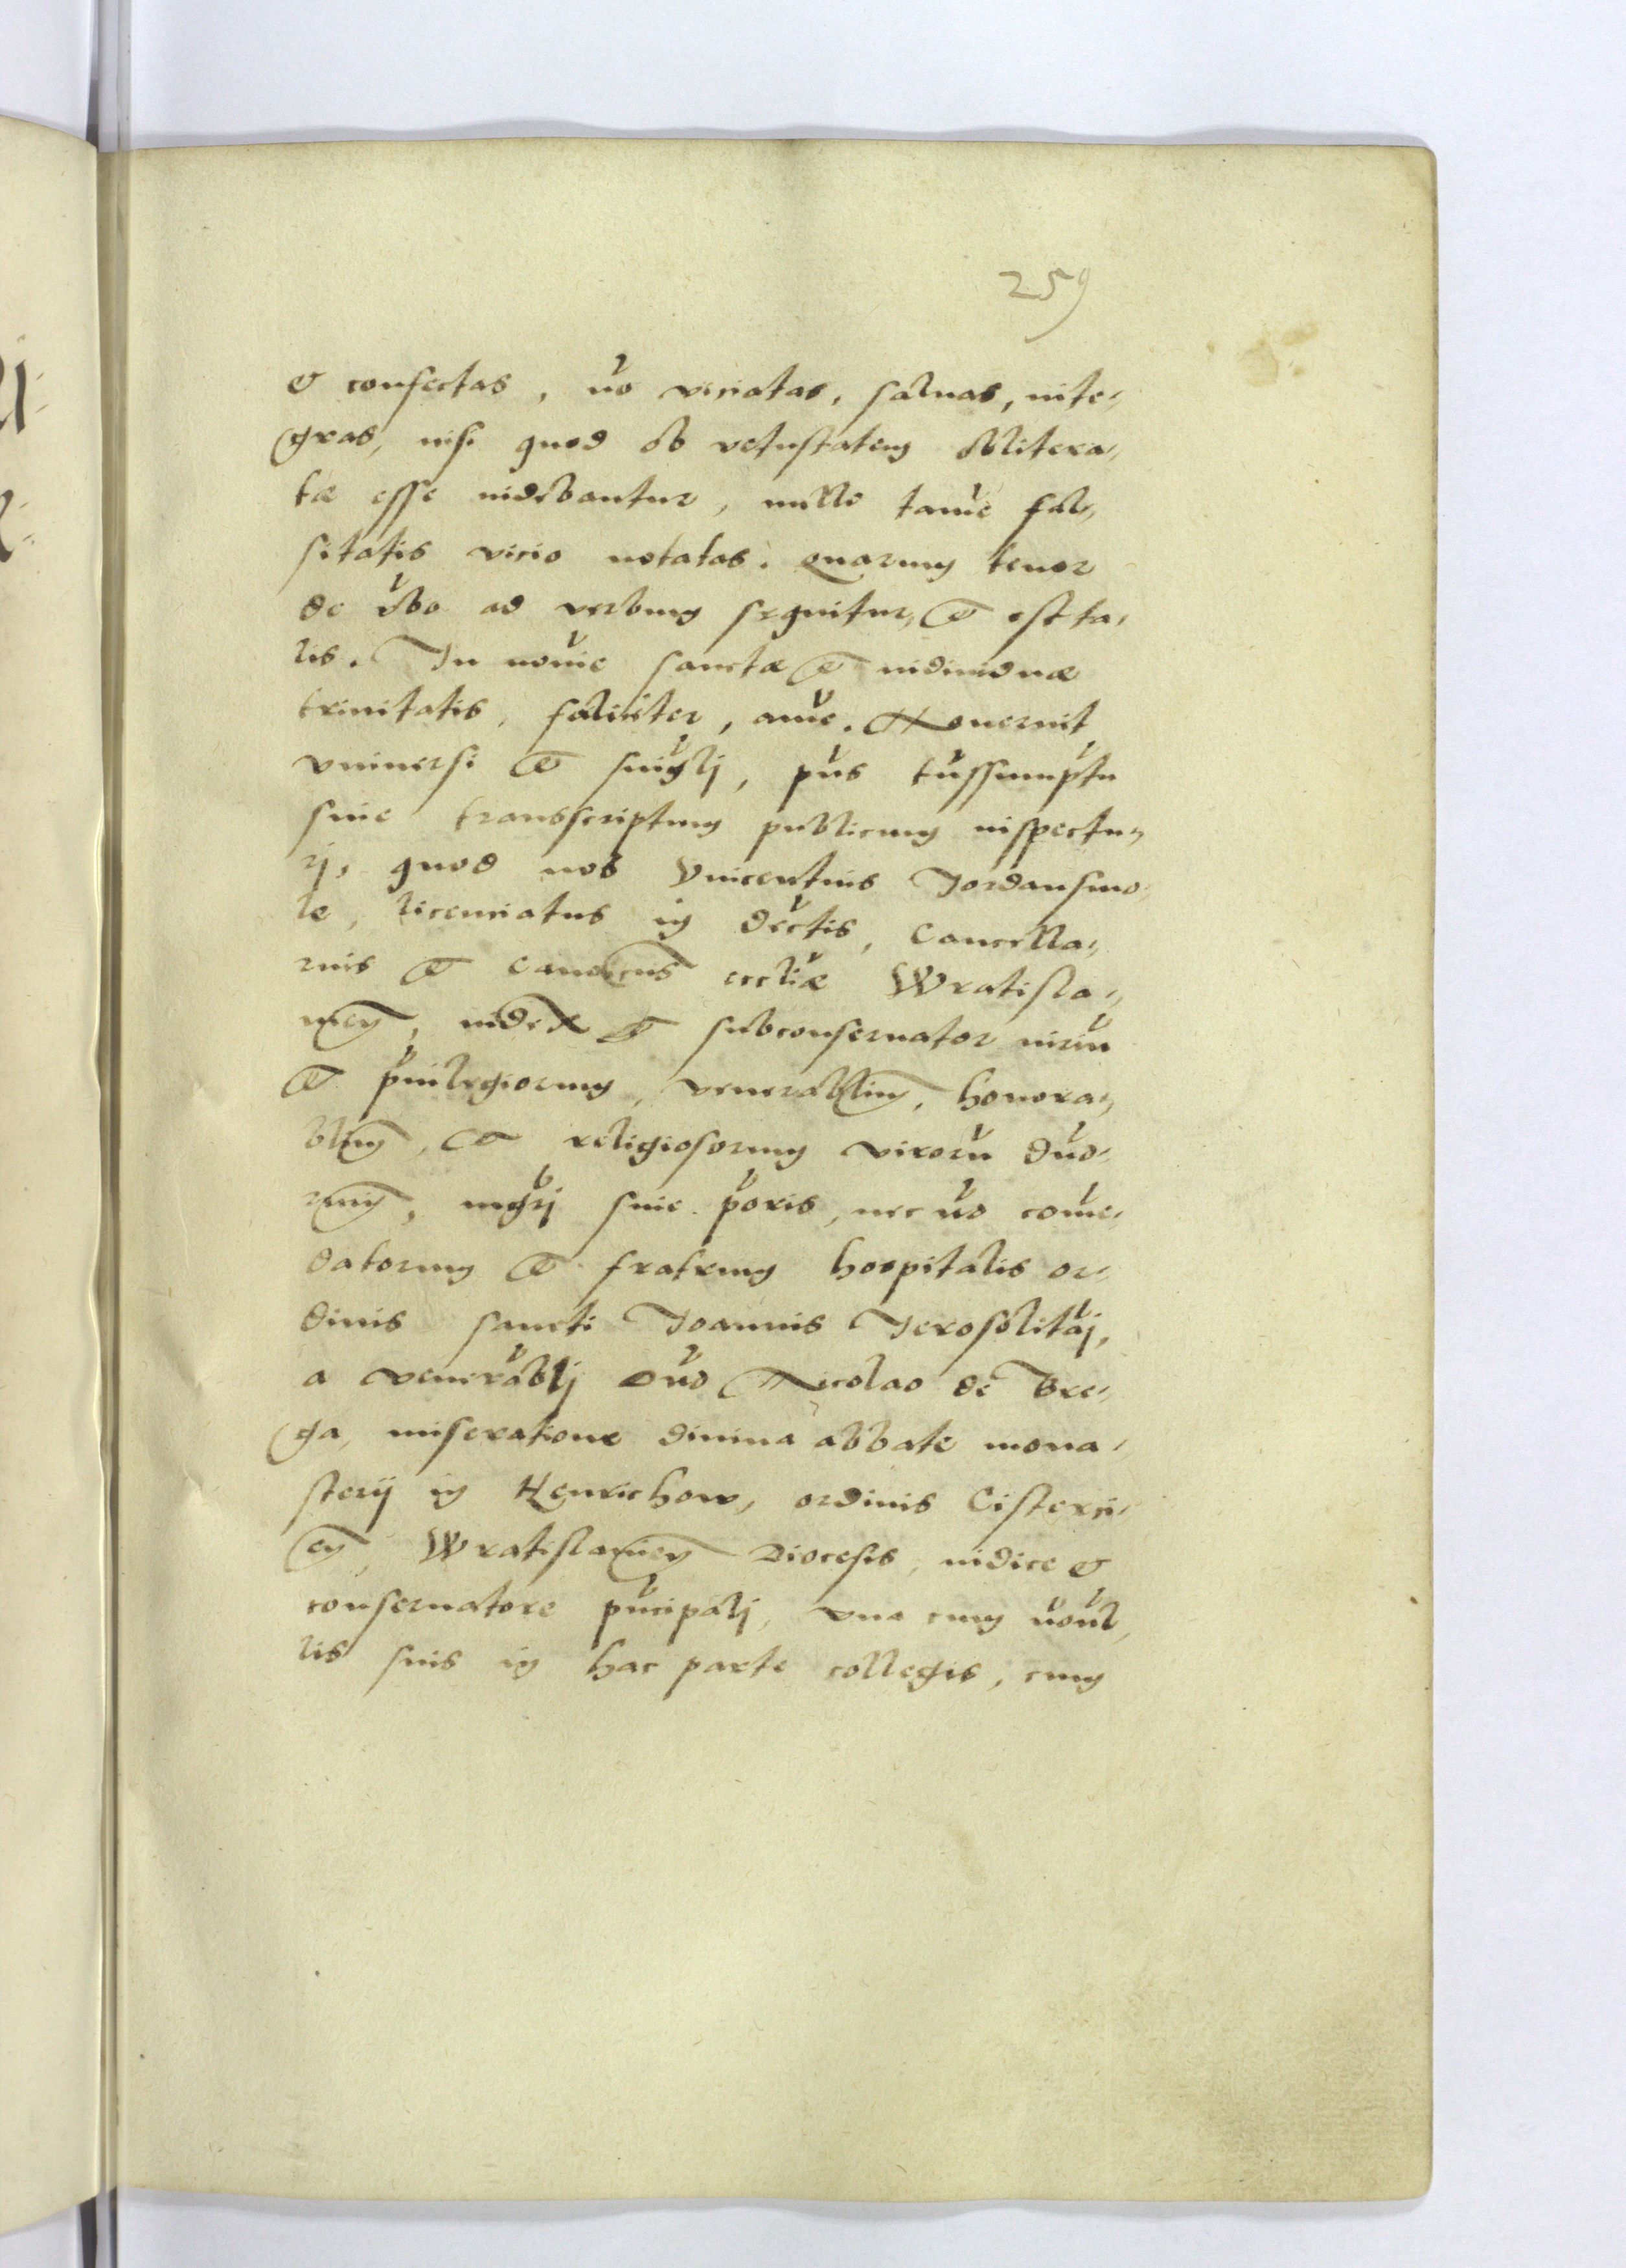 259
& confectas, nō viciatas, saluas, inte-
gras, nisi quod ob vetustatem oblitera-
tæ esse uidebantur, nulle tamē fal-
sitatis vicio notatas. quarum tenor
de v̄bo ad verbum sequitur, et est ta-
lis. In noīe sanctæ et indiuiduæ
trinitatis, fœliciter, amē. Nouerint
vniuersi et singlj, pn̄s tn̄ssumptū
siue transscriptum publicum inspectu-
rj, quod nos Vincentius Jordansmo-
le, licenciatus in dectis, Cancella-
rius et canonicus eccliæ Wratisla-
uien, iudex et subconseruator iuriū
et p̄uilegiorum, venerabilium, honora-
bilium, et religiosorum virorū dn̄o-
rum, mgr̄j siue p̄oris, nec nō com̄e-
datorum et fratrum hospitalis or-
dinis sancti Joannis Jerosolitāj,
a venerablj Dn̄o Nicolao de Bre-
ga, miseratione diuina abbate mona-
sterij in Henrichow, ordinis Cisterci-
en, Wratislauien Diocesis, iudice &
conseruatore pn̄cipalj, vna cum nōnl-
lis suis in hac parte collegis, cum